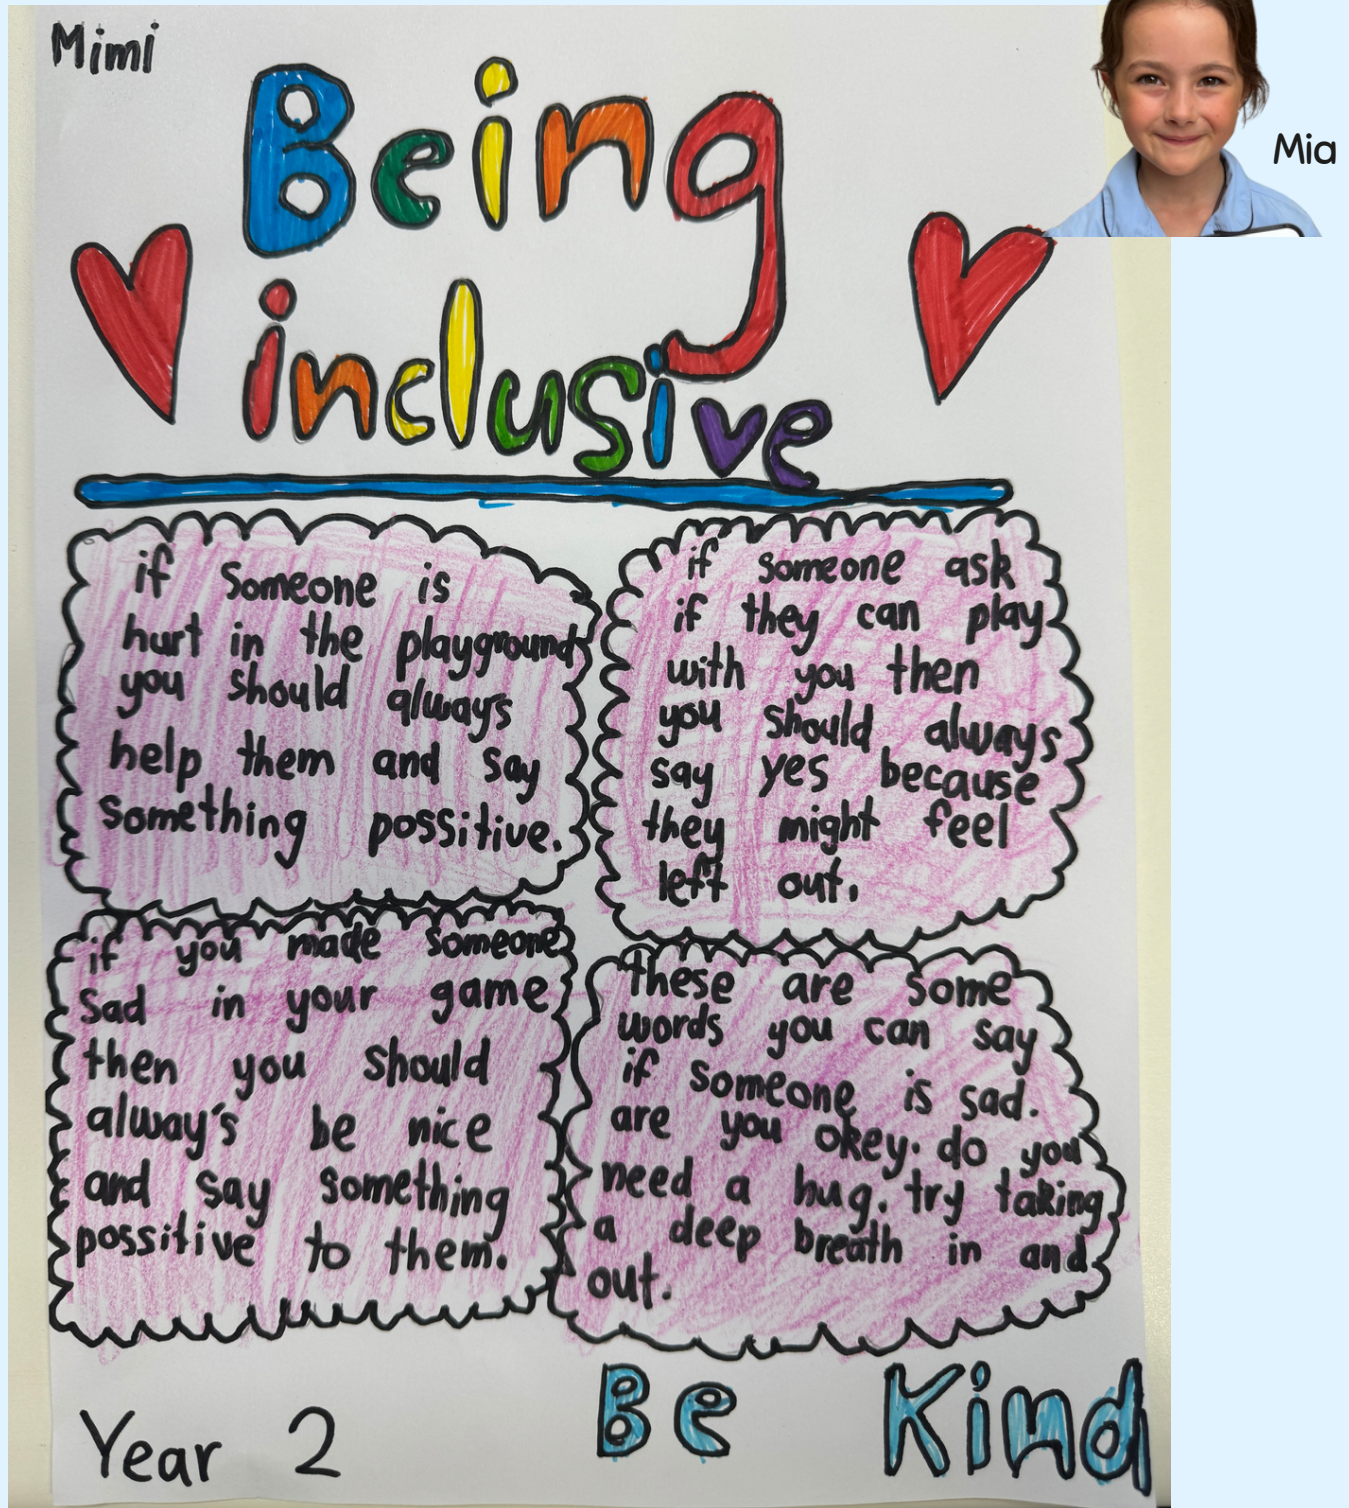 Mimi
Mia
Being
inclusive
if someone is
hurt in the playground
you should always
help them and say
something possitive.
if someone ask
if they can play
with you then
you should always
say yes because
they might feel
left out.
if you made someone
sad in your game
then you should
alway's be nice
and say something
possitive to them.
these are some
words you can say
if someone is sad.
are you okey. do you
need a hug. try taking
a deep breath in and
out.
Year 2
Be Kind